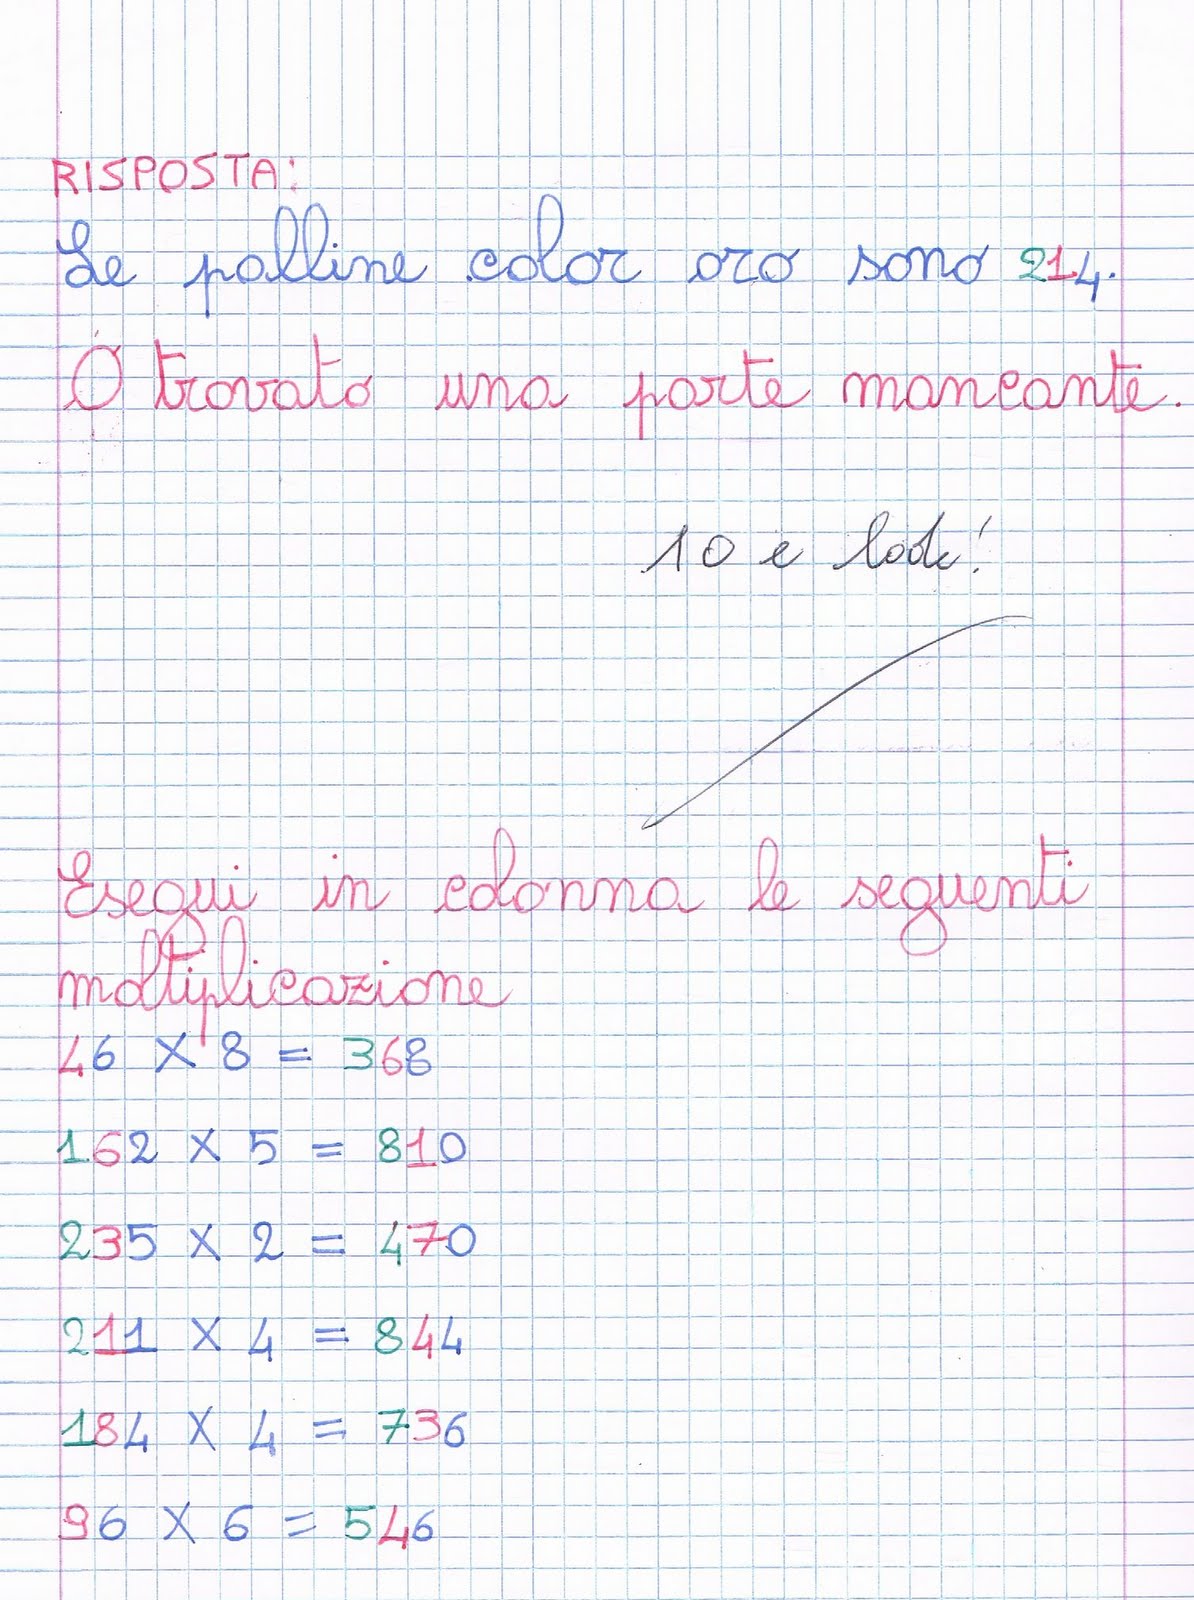 RISPOSTA:
Le palline color oro sono 214.
Ó trovato una parte mancante.
10 e lode!
Esegui in colonna le seguenti
moltiplicazione
46 X 8 = 368
162 X 5 = 810
235 X 2 = 470
211 X 4 = 844
184 X 4 = 736
96 X 6 = 546